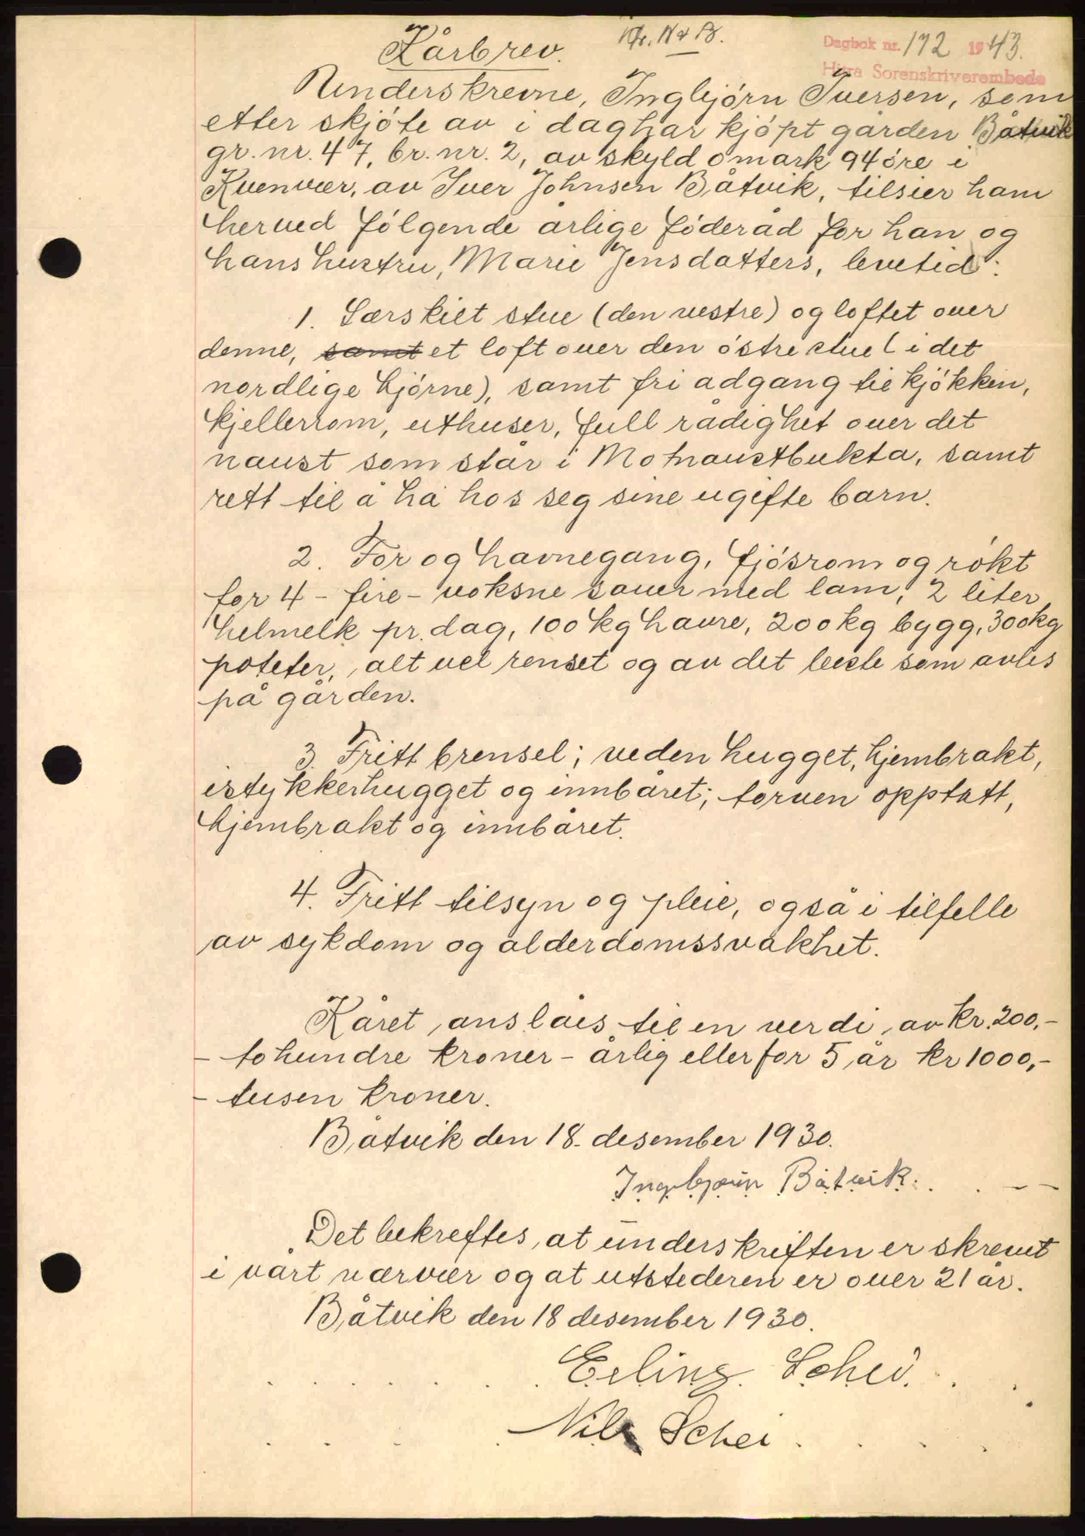 Kårbrev.
Dagbok nr. 172 1943.
Hitra Sorenskriverembede
Underskrevne, Ingbjörn Iversen, som
etter skjöte av i dag har kjöpt gården Båtvik
gr. nr. 47, br. nr. 2, av skyld 0 mark 94 öre i
Kvenvær, av Iver Johnsen Båtvik, tilsier ham
herved fölgende årlige föderåd for han og
hans hustru, Marie Jensdatters, levetid:
1. Særskilt stue (den vestre) og loftet over
denne, samt et loft over den östre stue (i det
nordlige hjörne), samt fri adgang til kjökken,
kjellerrom, uthuser, full rådighet over det
naust som står i Monaustbukta, samt
rett til å ha hos seg sine ugifte barn.
2. For og havnegang, fjösrom og rökt
for 4 - fire - voksne sauer med lam, 2 liter
helmelk pr. dag, 100 kg havre, 200 kg bygg, 300 kg
poteter, alt vel renset og av det beste som avles
på gården.
3. Fritt brensel; veden hugget, hjembrakt,
istykkerhugget og innbåret; torven opptatt,
hjembrakt og innbåret.
4. Fritt tilsyn og pleie, også i tilfelle
av sykdom og alderdomssvakhet.
Kåret anslåes til en verdi av kr. 200,-
- to hundre kroner - årlig eller for 5 år kr 1000,-
- tusen kroner.
Båtvik den 18. desember 1930.
Ingebjørn Båtvik.
Det bekreftes, at underskriften er skrevet
i vårt nærvær og at utstederen er over 21 år.
Båtvik den 18 desember 1930.
Erling Schei.
Nils Schei